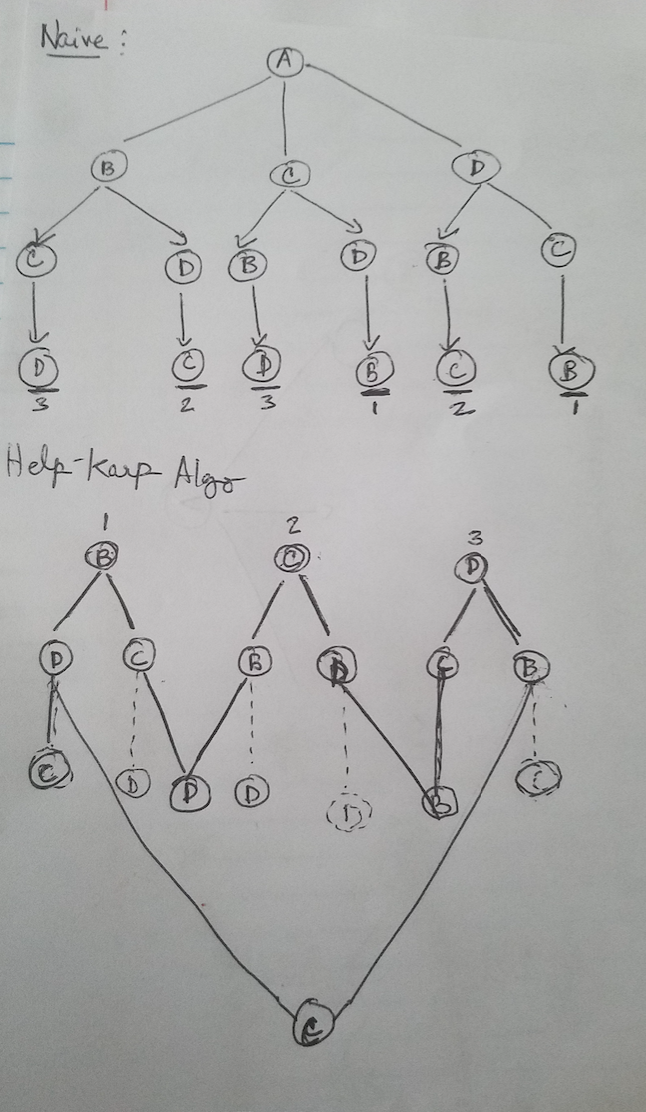 Naive :
A
B C D
C D B D B C
D C D B C B
3 2 3 1 2 1
Help-Karp Algo
1 2 3
B C D
D C B D C B
C D D D B C
C